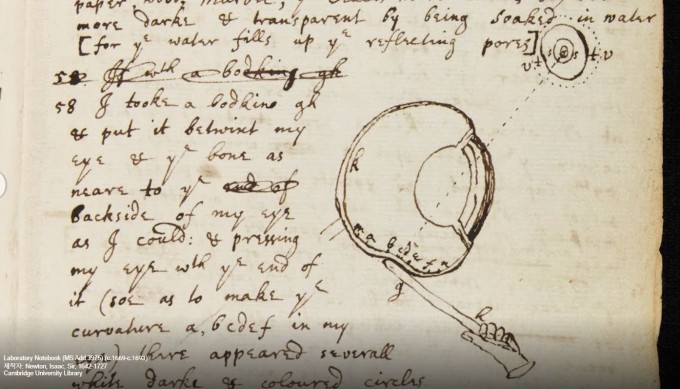 more darke & transparent by being soaked in water
[for yᵉ water fills up yᵉ reflecting pores]
58 I tooke a bodkine gh
& put it betwixt my
eye & yᵉ bone as
neare to yᵉ
backside of my eye
as I could: & pressing
my eye wth yᵉ end of
it (soe as to make yᵉ
curvature a, bcdef in my
there appeared severall
white darke & coloured circles
h
g
k
Laboratory Notebook (MS Add.3975) (c.1669-c.1693)
제작자: Newton, Isaac, Sir, 1642-1727
Cambridge University Library